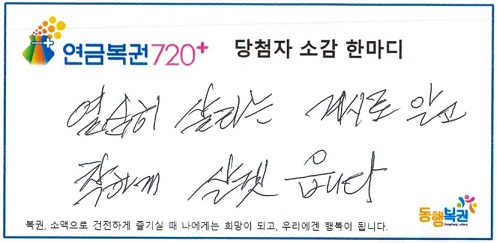 연금복권720+ 당첨자 소감 한마디
열심히 살라는 계시로 알고
착하게 살겟 읍니다
동행복권
복권, 소액으로 건전하게 즐기실 때 나에게는 희망이 되고, 우리에겐 행복이 됩니다.